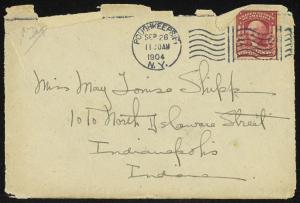 POUGHKEEPSIE
SEP 26
11 30AM
1904
N.Y.
Miss May Louise Shipp
1010 North Delaware Street
Indianapolis
Indiana